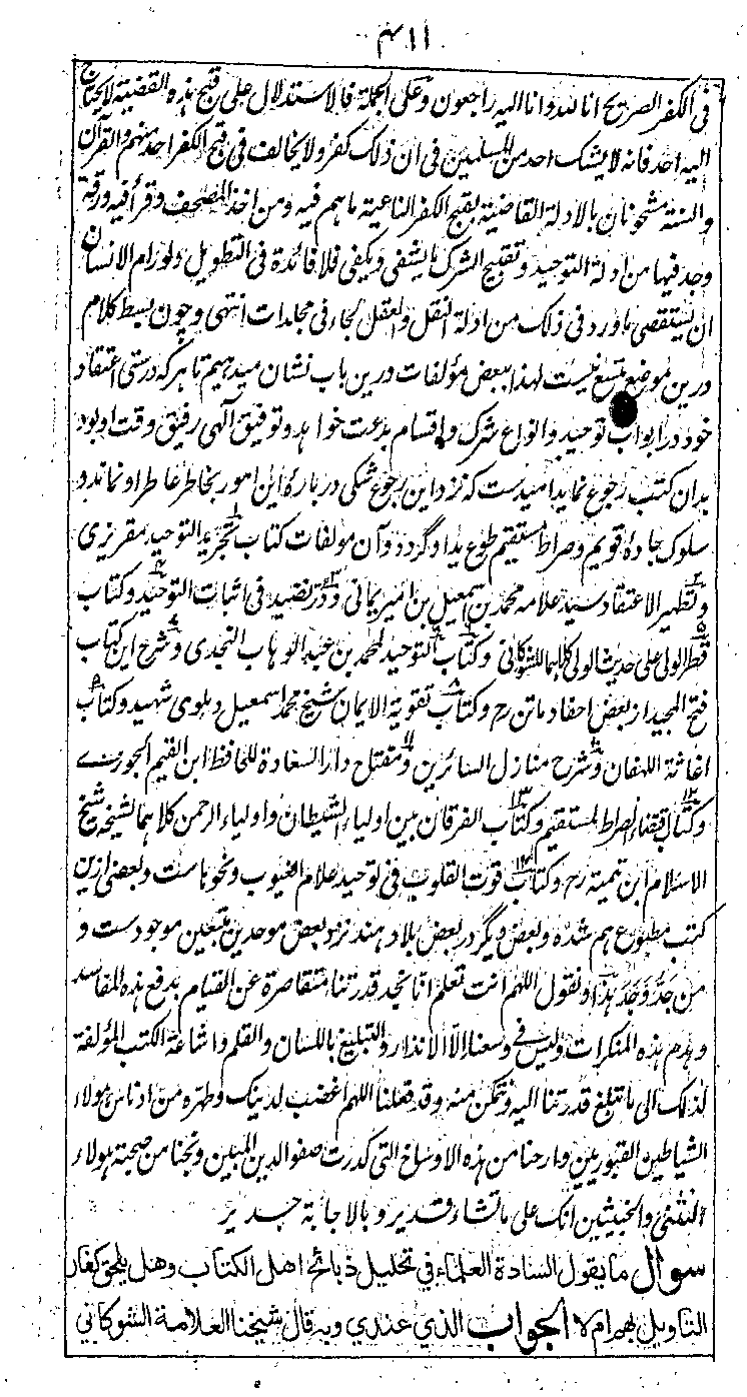 في الكفر الصريح انا لله وانا اليه راجعون وعلى الجملة فالاستدلال على قبح هذه القضية لا يحتاج
اليه احد فانه لا يشك احد من المسلمين في ان ذلك كفر ولا يخالف في قبح الكفر احد منهم والقرآن
والسنة مشحونان بالادلة القاضية بقبح الكفر الناعية ما هم فيه ومن اخذ المصحف وقرأ فيه ورقة
وجد فيها من ادلة التوحيد وتقبيح الشرك ما يشفى ويكفى فلا فائدة في التطويل ولو رام الانسان
ان يستقصى ما ورد فى ذلك من ادلة النقل والعقل لجاء فى مجلدات انتهى وچون بسيط كلام
درين موضع متسع نيست لهذا ببعض مؤلفات درين باب نشان ميدهيم تا هر كه درستى اعتقاد
خود در ابواب توحيد وانواع شرك واقسام بدعت خواهد وتوفيق آلهى رفيق وقت او بود
بدان كتب رجوع نمايد اميدست كه نزد اين رجوع شكى درباره اين امور بخاطر عاطر او نماند و
سلوك جادۀ قويم وصراط مستقيم طوع يد او گردد وآن مؤلفات كتاب تجريد التوحيد مقريزى
وتطهير الاعتقاد سيد علامه محمد بن اسمعيل بن امير يمانى ودر نضيد فى اثبات التوحيد وكتاب
قطر الولى على حديث الولى كلاهما للشوكانى وكتاب التوحيد لمحمد بن عبد الوهاب النجدى وشرح اين كتاب
فتح المجيد از بعض احفاد ماتن رح وكتاب تقوية الايمان شيخ محمد اسمعيل دہلوى شهيد وكتاب
اغاثة اللهفان وشرح منازل السائرين ومفتاح دار السعادة للحافظ ابن القيم الجوزے
وكتاب اقتضاء الصراط المستقيم وكتاب الفرقان بين اولياء الشيطان واولياء الرحمن كلاهما لشيخه شيخ
الاسلام ابن تيمية رح وكتاب قوت القلوب فى توحيد علام الغيوب ونحوہاست وبعضى ازين
كتب مطبوع هم شده وبعض ديگر در بعض بلاد هند نزد بعض موحدين متبعين موجودست و
من جَدَّ وَجَدَ هذا ونقول اللهم انت تعلم انا نجد قدرتنا متقاصرة عن القيام بدفع هذه المفاسد
وهدم هذه المنكرات وليس فى وسعنا الا الانذار والتبليغ باللسان والقلم واشاعة الكتب المؤلفة
لذلك الى ما تبلغ قدرتنا اليه ونتمكن منه وقد فعلنا اللهم اغضب لدينك وطهره من ادناس هولاء
الشياطين القبوريين وارحنا من هذه الاوساخ التى كدرت صفو الدين المبين ونجنا من صحبة هولاء
والخبيثين انك على ما تشاء قدير وبالاجابة جدير
سوال ما يقول السادة العلماء في تحليل ذبائح اهل الكتاب وهل يلحق كفار
التاويل بهم ام لا الجواب الذي عندي وبه قال شيخنا العلامة الشوكاني